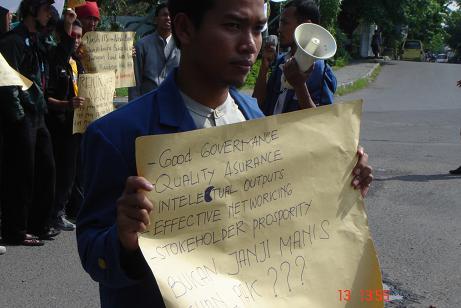 - GOOD GOVERNANCE
- QUALITY ASURANCE
INTELECTUAL OUTPUTS
EFFECTIVE NETWORICING
- STOKEHOLDER PROSPORITY
BUKAN JANJI MANIS
???
13 13:55